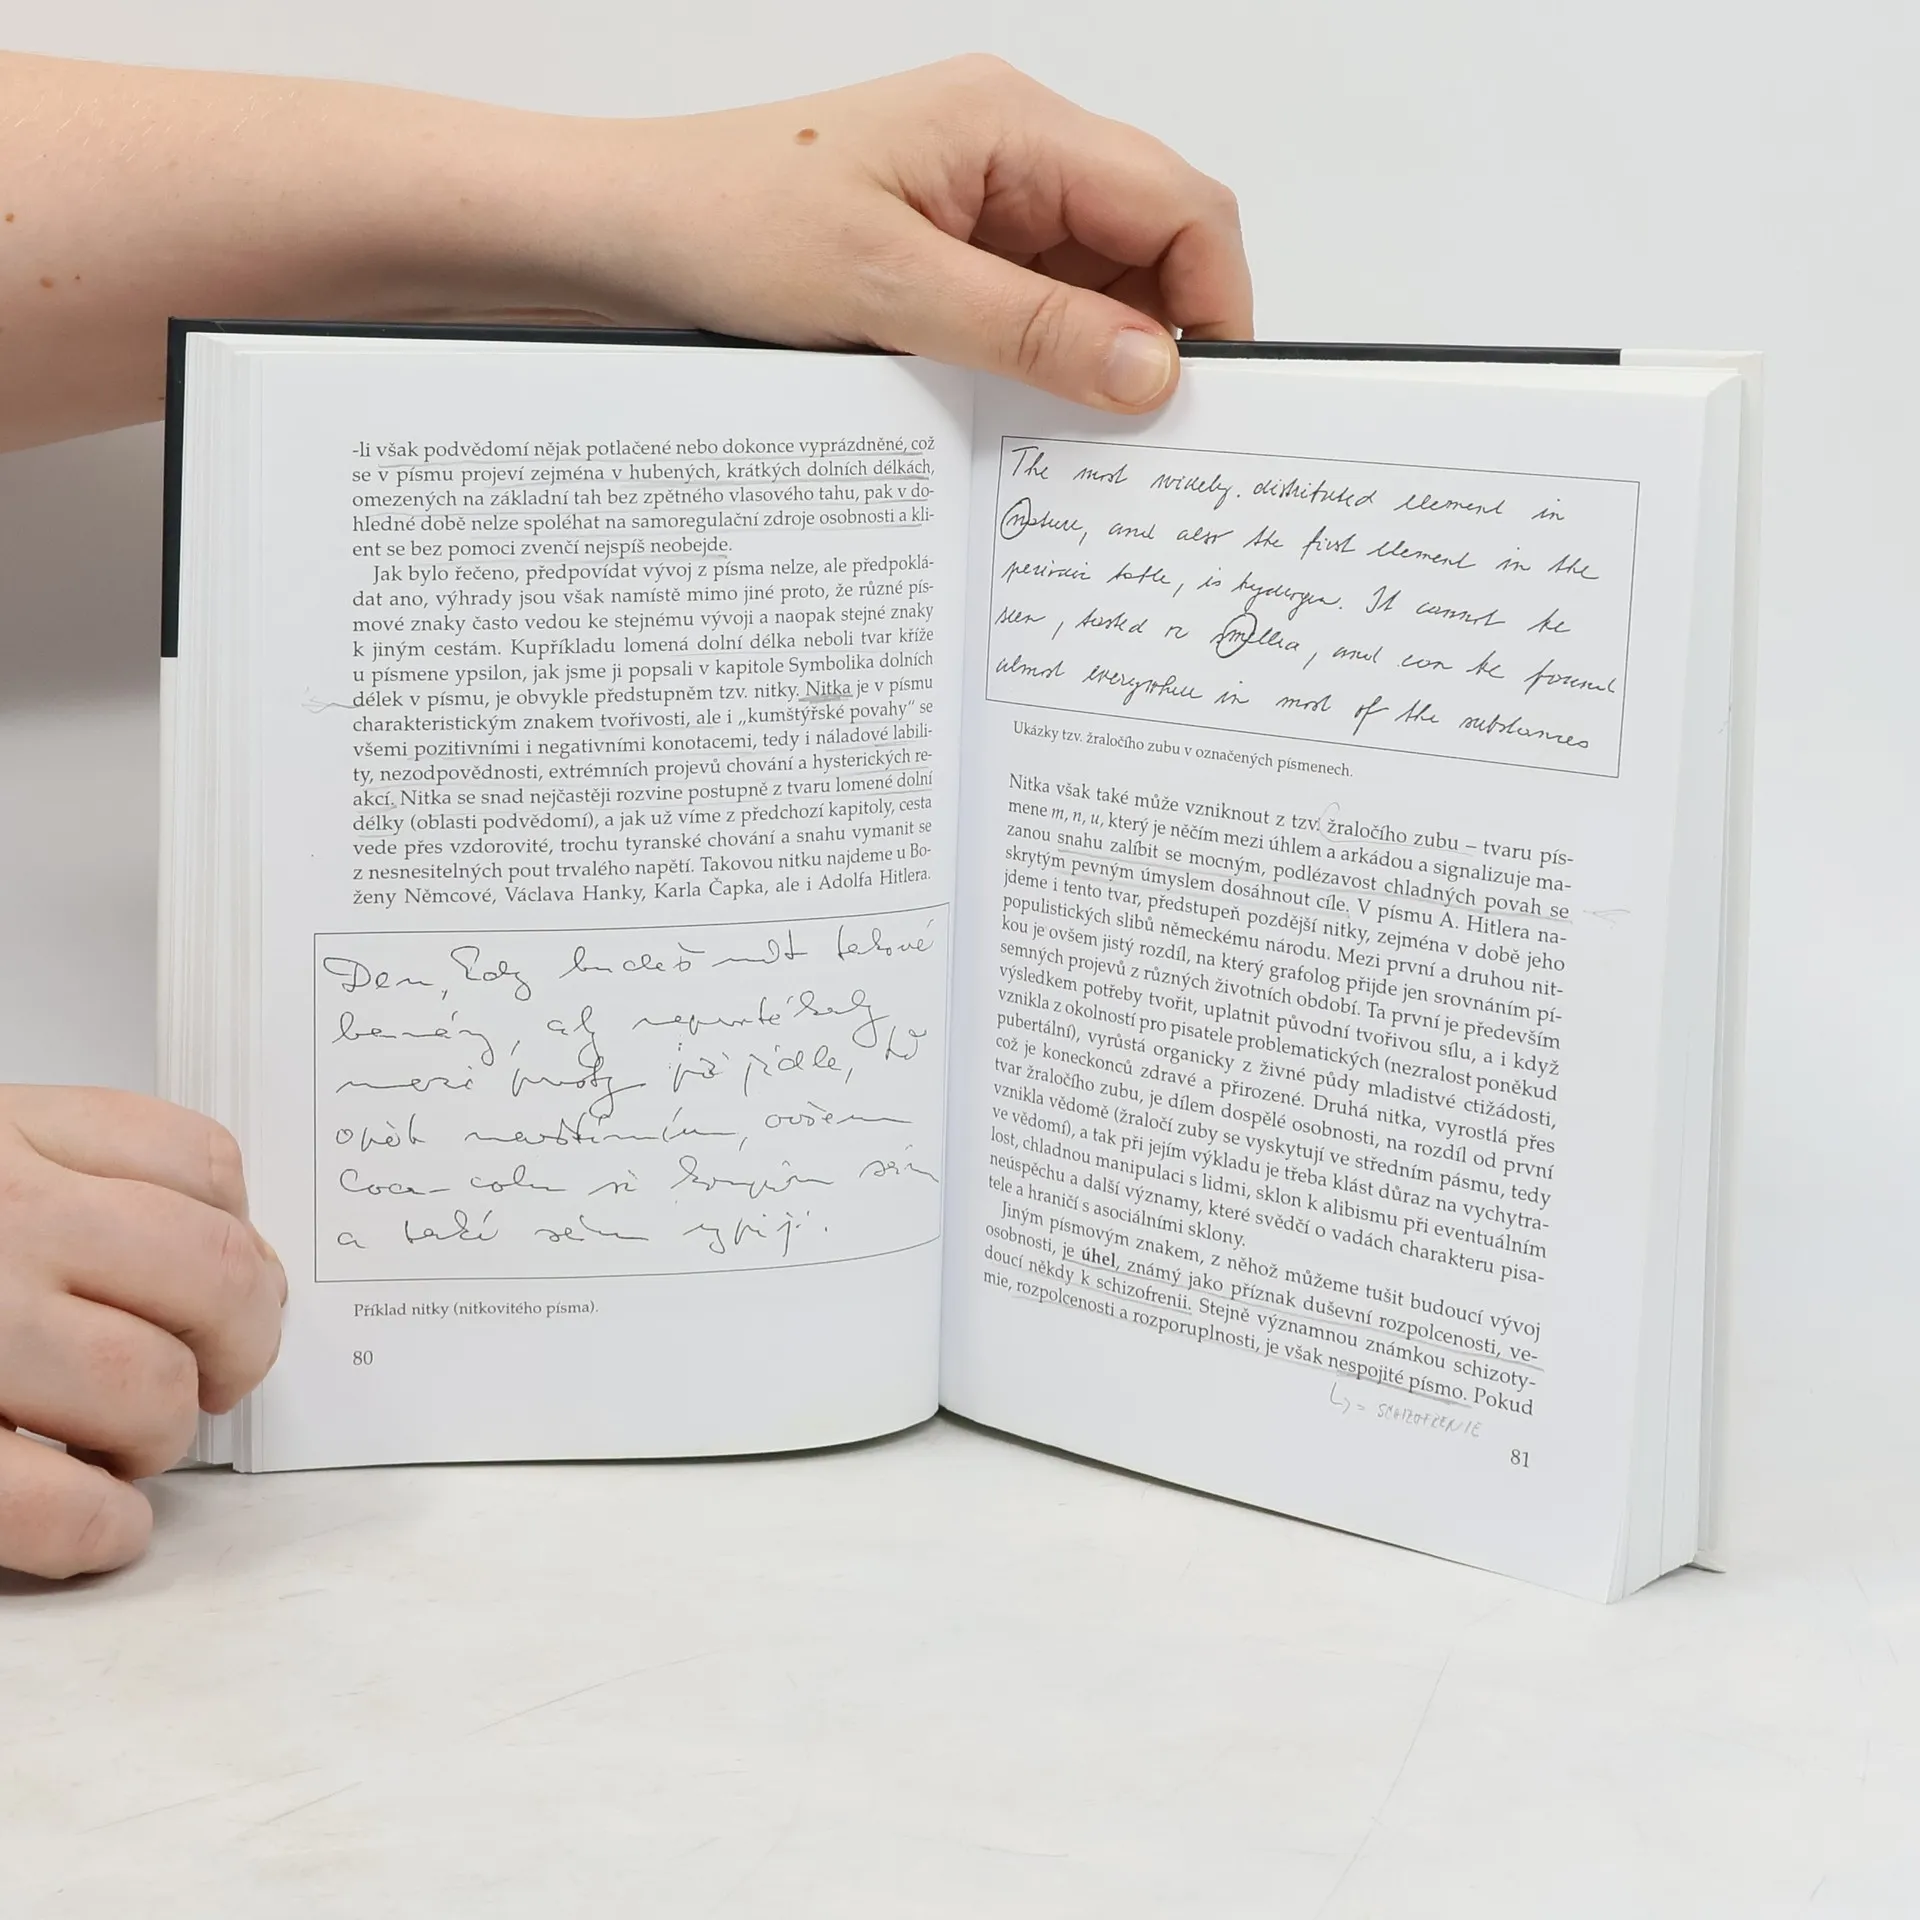 -li však podvědomí nějak potlačené nebo dokonce vyprázdněné, což
se v písmu projeví zejména v hubených, krátkých dolních délkách,
omezených na základní tah bez zpětného vlasového tahu, pak v do-
hledné době nelze spoléhat na samoregulační zdroje osobnosti a kli-
ent se bez pomoci zvenčí nejspíš neobejde.
Jak bylo řečeno, předpovídat vývoj z písma nelze, ale předpoklá-
dat ano, výhrady jsou však namístě mimo jiné proto, že různé pís-
mové znaky často vedou ke stejnému vývoji a naopak stejné znaky
k jiným cestám. Kupříkladu lomená dolní délka neboli tvar kříže
u písmene ypsilon, jak jsme ji popsali v kapitole Symbolika dolních
délek v písmu, je obvykle předstupněm tzv. nitky. Nitka je v písmu
charakteristickým znakem tvořivosti, ale i „kumštýřské povahy" se
všemi pozitivními i negativními konotacemi, tedy i náladové labili-
ty, nezodpovědnosti, extrémních projevů chování a hysterických re-
akcí. Nitka se snad nejčastěji rozvine postupně z tvaru lomené dolní
délky (oblasti podvědomí), a jak už víme z předchozí kapitoly, cesta
vede přes vzdorovité, trochu tyranské chování a snahu vymanit se
z nesnesitelných pout trvalého napětí. Takovou nitku najdeme u Bo-
ženy Němcové, Václava Hanky, Karla Čapka, ale i Adolfa Hitlera.
Den, kdy budeš mít takové
banány, aby neputovaly
mezi prsty při jídle, tě
opět navštívím, ovšem
Coca-colu si koupím sám
a také sám vypiji.
Příklad nitky (nitkovitého písma).
80
The most widely distributed element in
nature, and also the first element in the
periodic table, is hydrogen. It cannot be
seen, tasted or smelled, and can be found
almost everywhere in most of the substances
Ukázky tzv. žraločího zubu v označených písmenech.
Nitka však také může vzniknout z tzv. žraločího zubu – tvaru pís-
mene m, n, u, který je něčím mezi úhlem a arkádou a signalizuje ma-
zanou snahu zalíbit se mocným, podlézavost chladných povah se
skrytým pevným úmyslem dosáhnout cíle. V písmu A. Hitlera na-
jdeme i tento tvar, předstupeň pozdější nitky, zejména v době jeho
populistických slibů německému národu. Mezi první a druhou nit-
kou je ovšem jistý rozdíl, na který grafolog přijde jen srovnáním pí-
semných projevů z různých životních období. Ta první je především
výsledkem potřeby tvořit, uplatnit původní tvořivou sílu, a i když
vznikla z okolností pro pisatele problematických (nezralost poněkud
pubertální), vyrůstá organicky z živné půdy mladistvé ctižádosti,
což je koneckonců zdravé a přirozené. Druhá nitka, vyrostlá přes
tvar žraločího zubu, je dílem dospělé osobnosti, na rozdíl od první
vznikla vědomě (žraločí zuby se vyskytují ve středním pásmu, tedy
ve vědomí), a tak při jejím výkladu je třeba klást důraz na vychytra-
lost, chladnou manipulaci s lidmi, sklon k alibismu při eventuálním
neúspěchu a další významy, které svědčí o vadách charakteru pisa-
tele a hraničí s asociálními sklony.
Jiným písmovým znakem, z něhož můžeme tušit budoucí vývoj
osobnosti, je úhel, známý jako příznak duševní rozpolcenosti, ve-
doucí někdy k schizofrenii. Stejně významnou známkou schizoty-
mie, rozpolcenosti a rozporuplnosti, je však nespojité písmo. Pokud
= SCHIZOFRENIE
81